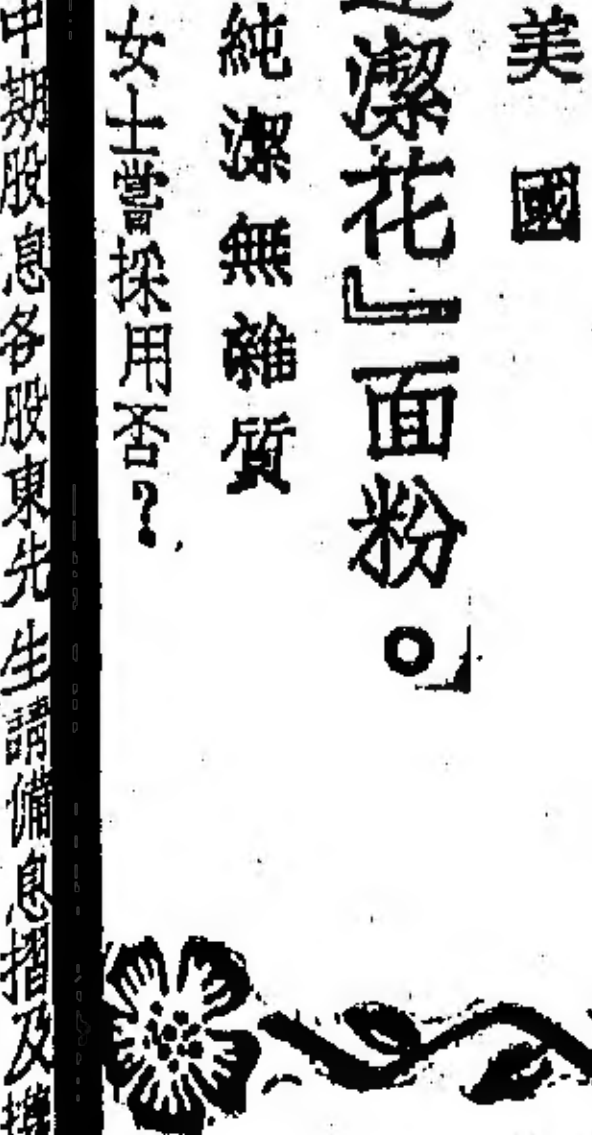 美國
潔花』面粉。
純潔無雜質
女士嘗採用否？
中期股息各股東先生請備息摺及